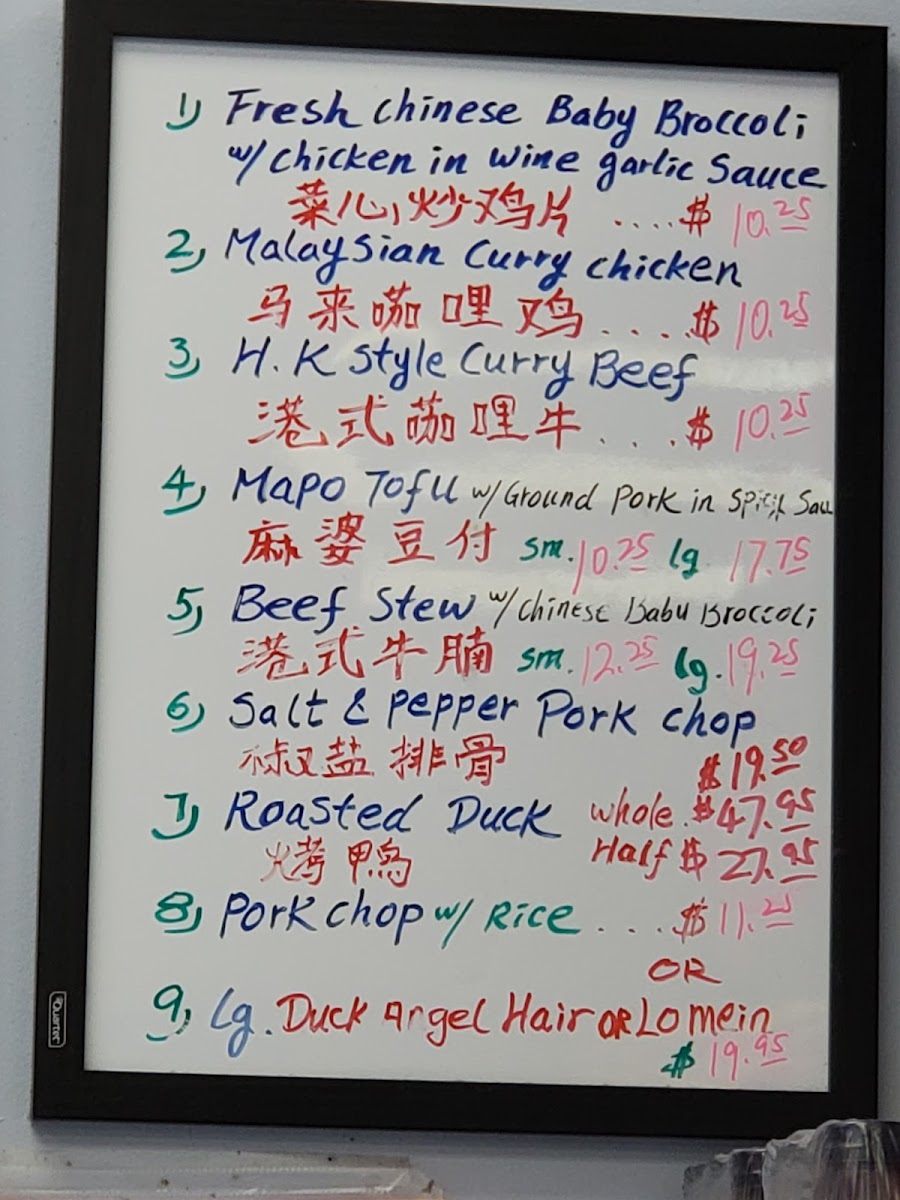 1) Fresh Chinese Baby Broccoli
w/ chicken in wine garlic Sauce
菜心炒鸡片 .... $ 10.25
2) Malaysian Curry chicken
马来咖哩鸡 ... . $ 10.25
3) H.K Style Curry Beef
港式咖哩牛 . .. . $ 10.25
4) Mapo Tofu w/ Ground Pork in Spicy Sau
麻婆豆付 sm. 10.25 lg 17.75
5) Beef Stew w/ Chinese Babu Broccoli
港式牛腩 sm. 12.25 lg. 19.25
6) Salt & Pepper Pork chop
椒盐排骨 $19.50
7) Roasted Duck whole. $47.95
烤鸭 Half $ 27.95
8) Pork chop w/ Rice ... . $ 11.25
OR
9) Lg. Duck Angel Hair OR Lo mein
$ 19.95
Quartet